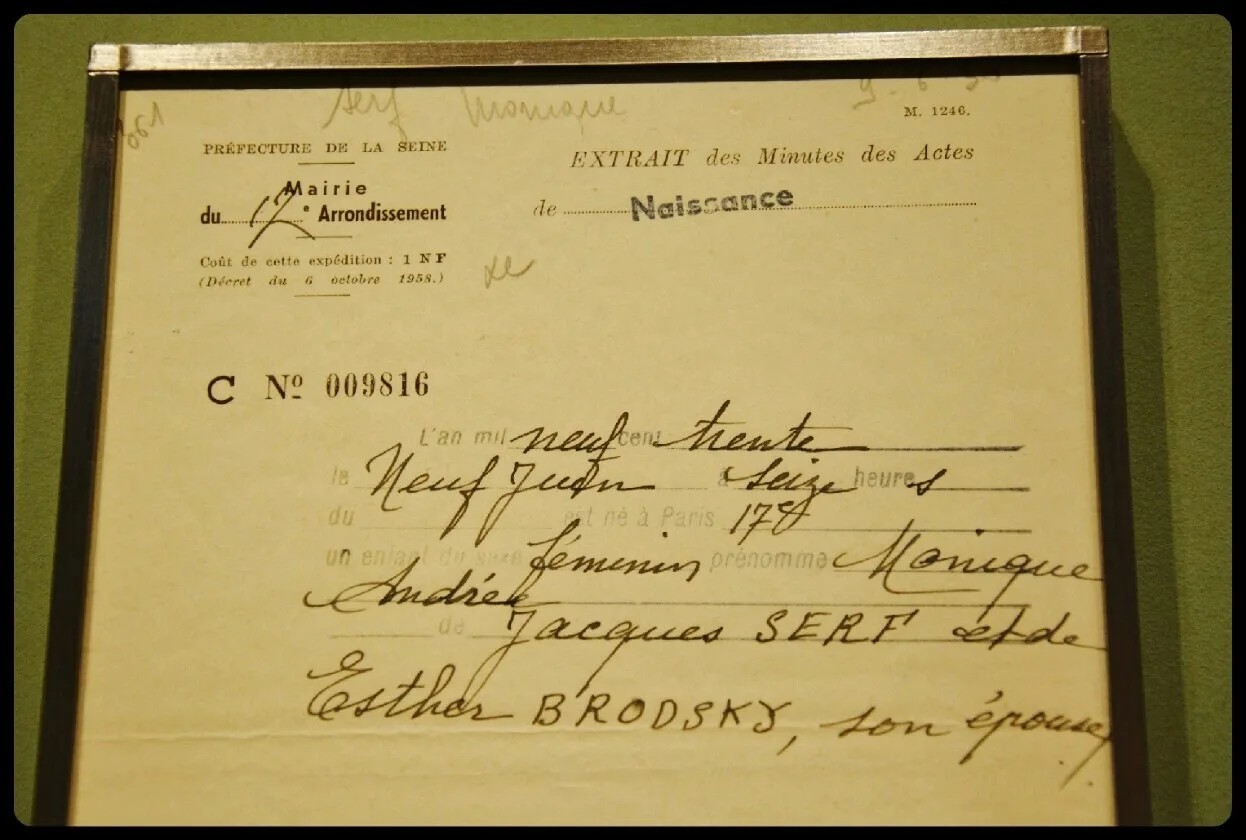 Serf Monique
M. 1246.
PRÉFECTURE DE LA SEINE
Mairie
du 17 e Arrondissement
Coût de cette expédition : 1 NF
(Décret du 6 octobre 1958.)
EXTRAIT des Minutes des Actes
de Naissance
C Nº 009816
L'an mil neuf cent trente
le Neuf Juin à seize heures
du est né à Paris 17e
un enfant du sexe féminin prénommé Monique
Andrée
de Jacques SERF et de
Esther BRODSKY, son épouse,